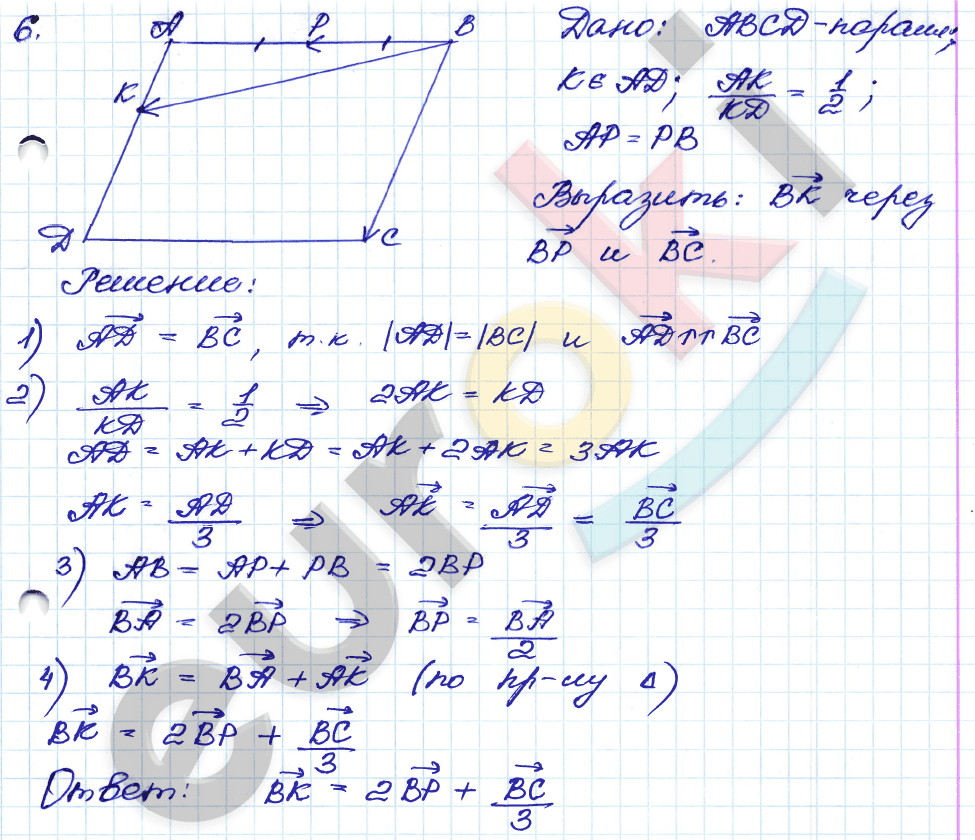 6. Дано: ABCD - паралл;
A P B
K
D C
K ∈ AD; AK/KD = 1/2;
AP = PB
Выразить: BK⃗ через
BP⃗ и BC⃗.
Решение:
1) AD⃗ = BC⃗, т.к. |AD|=|BC| и AD⃗ ↑↑ BC⃗
2) AK/KD = 1/2 ⇒ 2AK = KD
AD = AK + KD = AK + 2AK = 3AK
AK = AD/3 ⇒ AK⃗ = AD⃗/3 = BC⃗/3
3) AB = AP + PB = 2BP
BA⃗ = 2BP⃗ ⇒ BP⃗ = BA⃗/2
4) BK⃗ = BA⃗ + AK⃗ (по пр-лу Δ)
BK⃗ = 2BP⃗ + BC⃗/3
Ответ: BK⃗ = 2BP⃗ + BC⃗/3
euroki